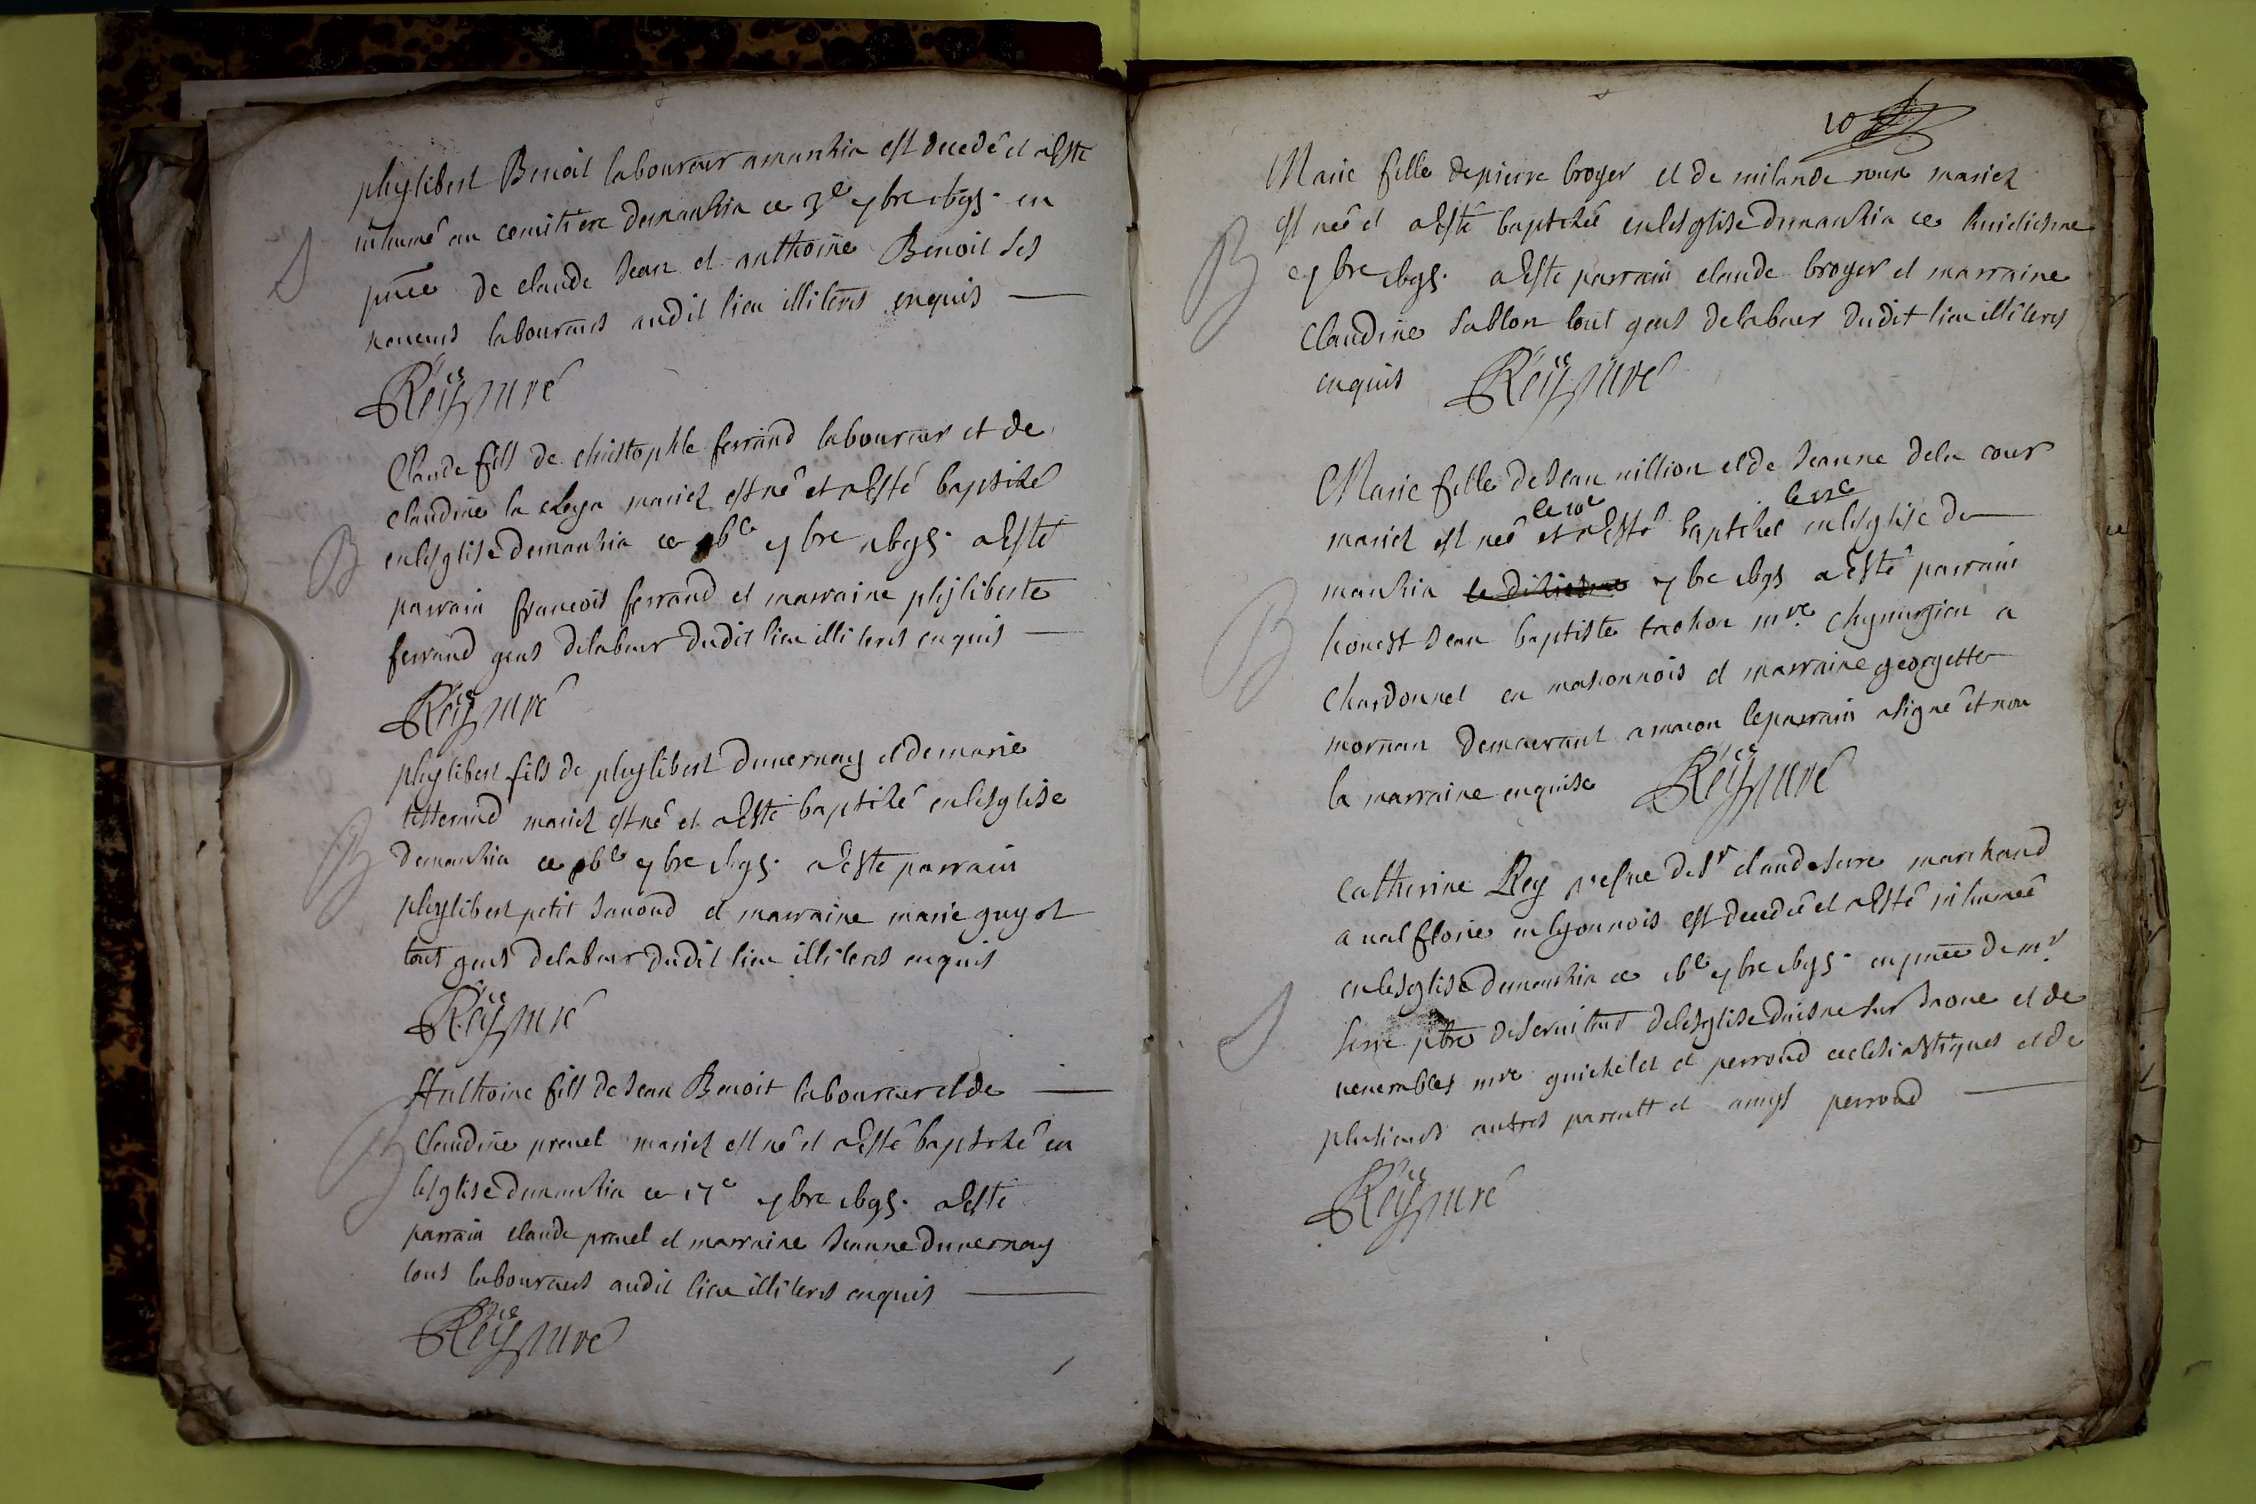 phylibert Benoit laboureur a manhia est decedé et a esté
inhumé au cemitiere de manhia ce 3e 7bre en
pnce de claude Jean et anthoine Benoit ses
neveus laboureurs audit lieu illiterés enquis
Rey curé
Claude fils de christophle ferrand laboureur et de
claudine la mariez est né et a esté baptizé
en l'esglise de manhia ce 7bre a esté
parrain françois ferrand et marraine phyliberte
ferrand gens de labeur dudit lieu illiterés enquis
Rey curé
phylibert fils de phylibert duvernay et de marie
tisserand mariez est né et a esté baptizé en l'esglise
de manhia ce 7bre a este parrain
phylibert petit Janond et marraine marie guyot
tous gens de labeur dudit lieu illiterés enquis
Rey curé
Anthoine fils de Jean Benoit laboureur et de
Claudine prevel mariez est né et a esté baptizé en
l'esglise de manhia ce 17e 7bre a esté
parrain claude prevel et marraine Jeanne duvernay
tous laboureurs audit lieu illiterés enquis
Rey curé
10
Marie fille de pierre broyer et de mariez
est née et a esté baptizée en l'esglise de manhia ce huictiesme
7bre a este parrain claude broyer et marraine
Claudine Sablon tout gens de labeur dudit lieu illiterés
enquis Rey curé
Marie fille de Jean million et de Jeanne dela cour
le 10e
mariez est née et a esté baptizée en l'esglise de
manhia le dixiesme 7bre a esté parrain
honest Jean baptiste mre chyrurgien a
Chardonnet en masconnois et marraine georgette
mornan demeurant a macon le parrain a signé et non
la marraine enquise Rey curé
Catherine Rey vefve de Sr claude Serre marchand
a valflorie en lyonnois est decedée et a esté inhumée
en l'esglise de manhia ce 7bre en pnce de mr
Serre pbre deservitant de l'esglise sur Saone et de
venerables mre guichelet et perroud ecclesiastiques et de
plusieurs autres parents et amys perroud
Rey curé